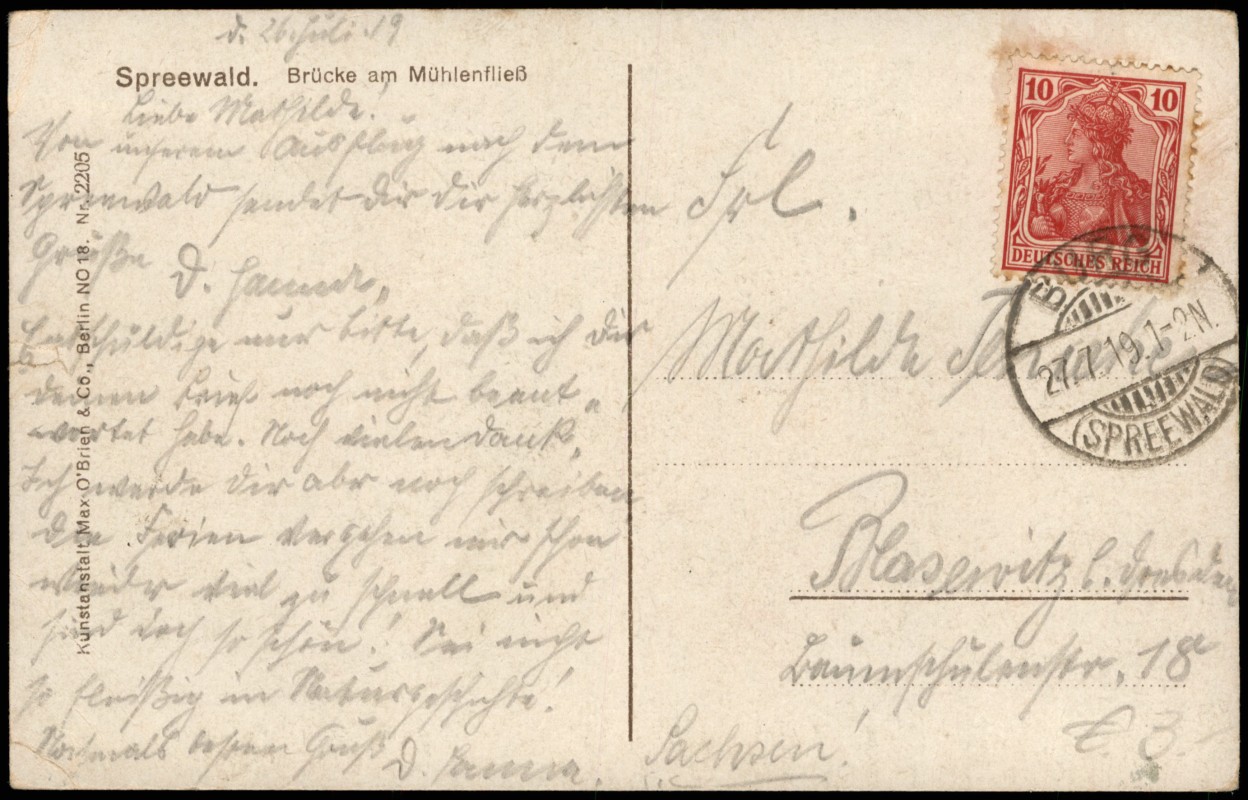 d. 26. Juli 19
Spreewald. Brücke am Mühlenfließ
Liebe Mathilde.
Von unserem Ausflug nach dem
Spreewald sendet Dir die herzlichsten
Grüße D. Hanna,
Entschuldige nur bitte, daß ich Dir
deinen Brief noch nicht beant„
wortet habe. Noch vielen Dank.
Ich werde Dir abr noch schreiben
Die Ferien vergehen mir schon
wieder viel zu schnell und
sind doch so schön! Sei nicht
so fleißig in Naturgeschichte!
Nochmals besten Gruß
D. Hanna.
Kunstanstalt Max O'Brien & Co., Berlin NO 18. Nr. 2205
Frl.
Mathilde
Blasewitz b. Dresden
Baumschulenstr. 18
Sachsen!
10 10
DEUTSCHES REICH
BURG
27.7.19.1-2N.
(SPREEWALD)
3.-